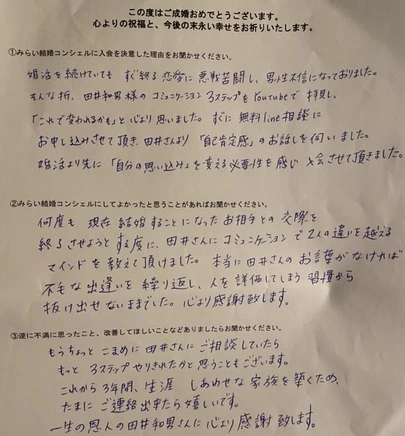 この度はご成婚おめでとうございます。
心よりの祝福と、今後の末永い幸せをお祈りいたします。
①みらい結婚コンシェルに入会を決意した理由をお聞かせください。
婚活を続けていても すぐ終る恋愛に悪戦苦闘し、男性不信になっておりました。
そんな折、田井和男様の コミュニケーション3ステップを YouTubeで 拝見し、
「これで変われるかも」と心より思いました。すぐに 無料line相談に
お申し込みさせて頂き、田井さんより 「自己肯定感」のお話しを伺いました。
婚活より先に「自分の思い込み」を変える必要性を感じ 入会させて頂きました。
②みらい結婚コンシェルにしてよかったと思うことがあればお聞かせください。
何度も 現在結婚することになったお相手との交際を
終了させようとする度に、田井さんにコミュニケーションで2人の違いを越える
マインドを教えて頂けました。本当に田井さんのお言葉がなければ
不毛な出逢いを繰り返し、人を評価してしまう習慣から
抜け出せないままでした。心より感謝致します。
③逆に不満に思ったこと、改善してほしいことなどありましたらお聞かせください。
もうちょっと こまめに田井さんにご相談していたら
もっと 3ステップやりきれたかと思うこともございます。
これから3年間、生涯 しあわせな家族を築くため、
たまにご連絡出来たら嬉しいです。
一生の恩人の田井和男さんに心より感謝致します。